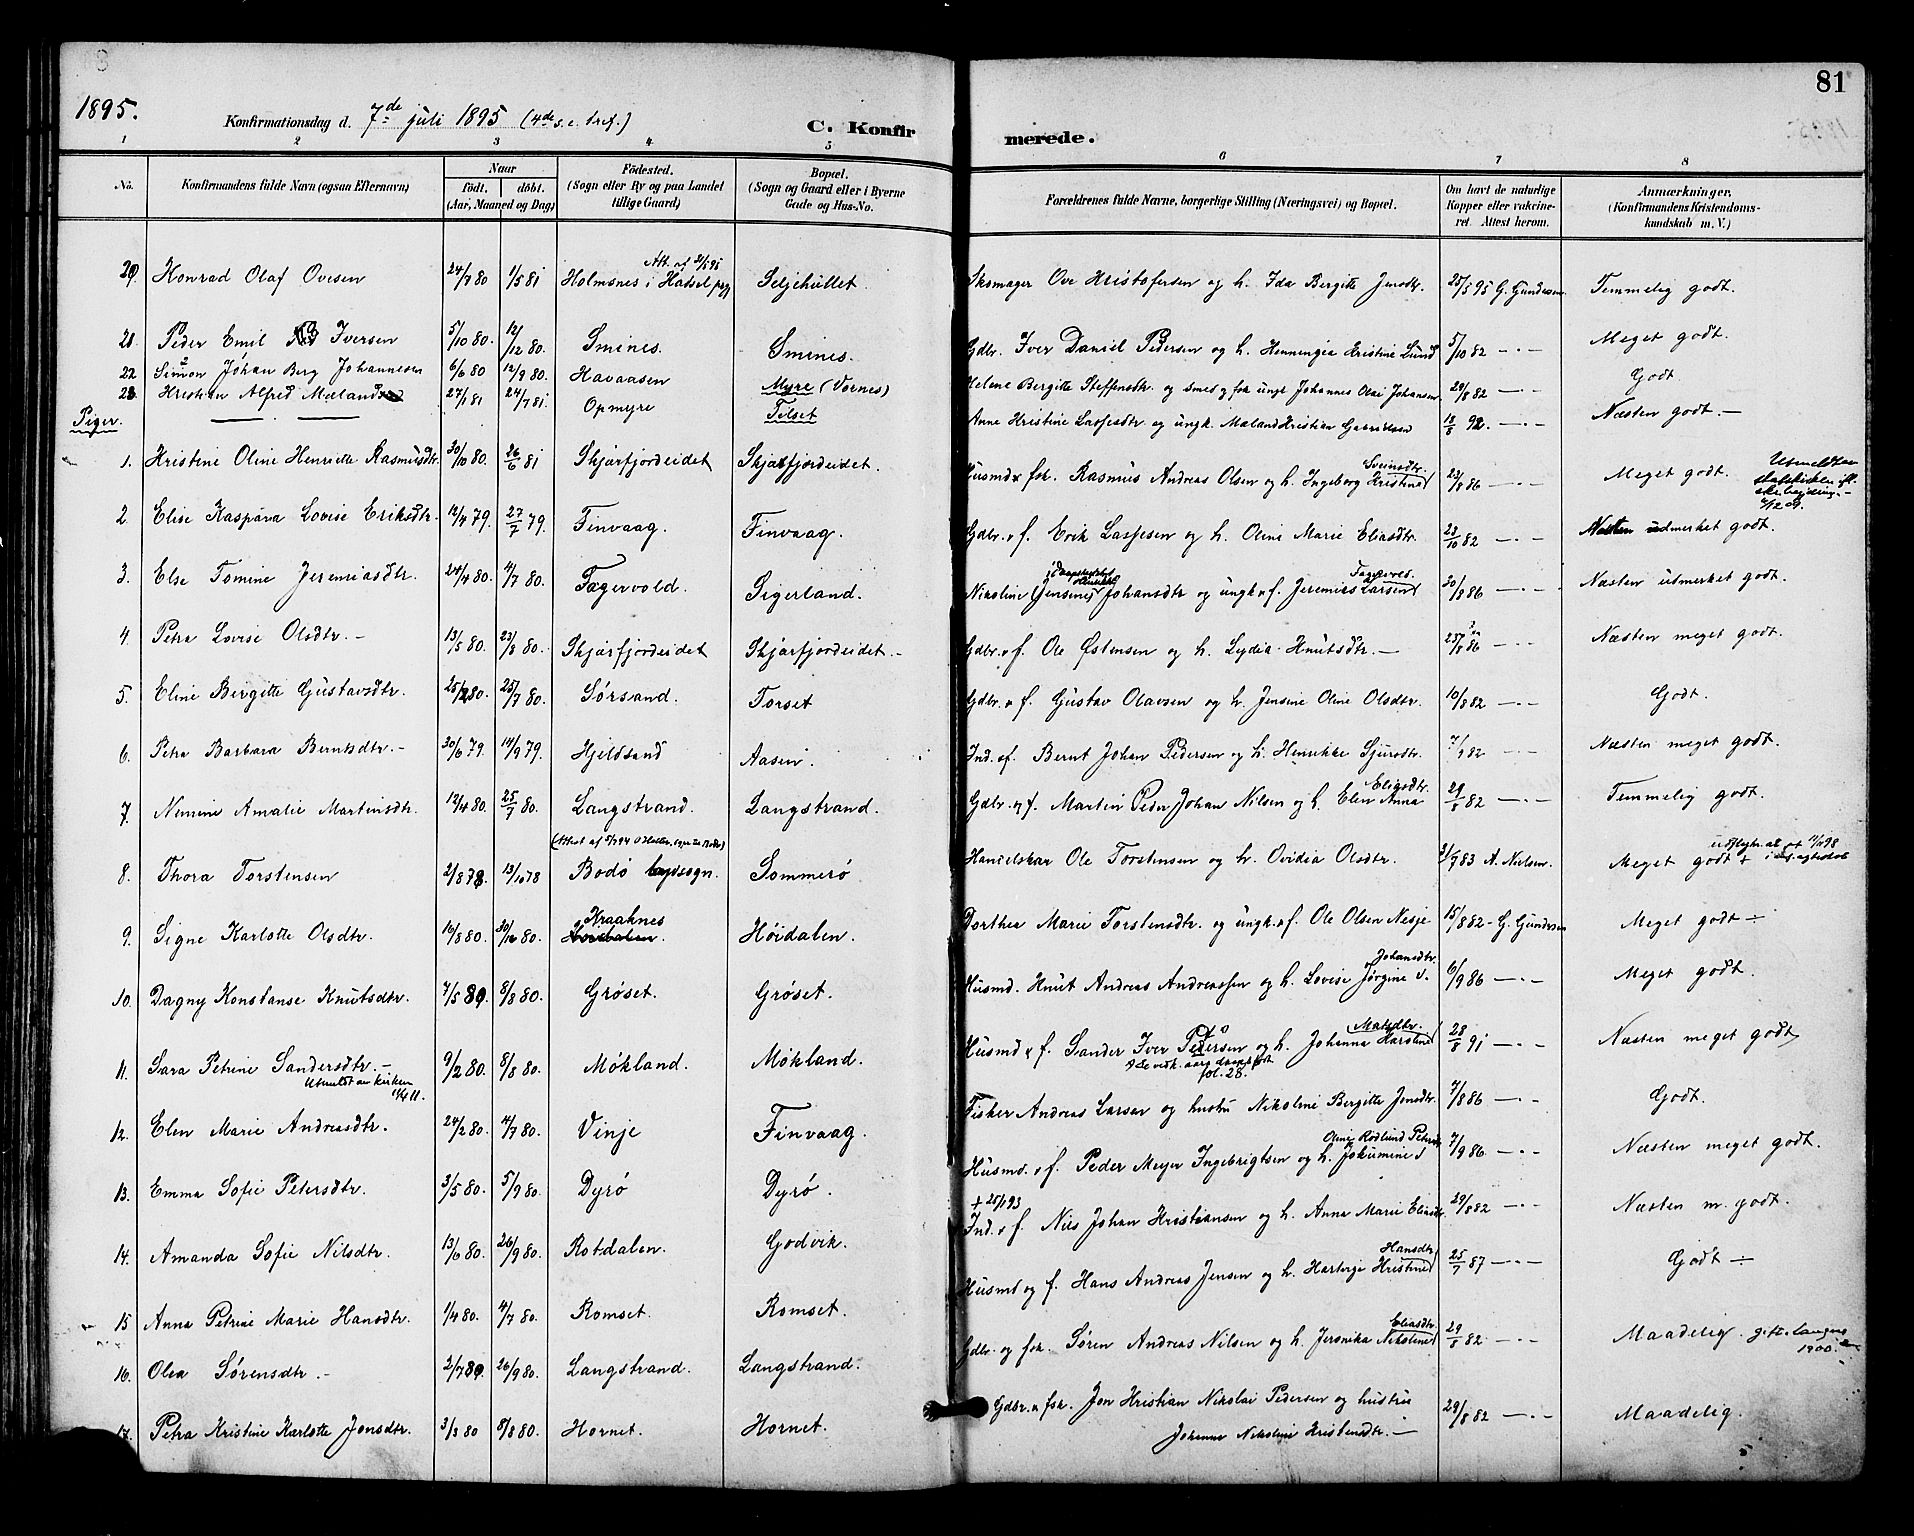 81
1895.
Konfirmationsdag d. 7de juli 1895 (4de s. e. tref.)
C. Konfirmerede.
1 2 3 4 5 6 7 8
No. Konfirmandens fulde Navn (ogsaa Efternavn) Naar födt. döbt. (Aar, Maaned og Dag) Födested. (Sogn eller By og paa Landet tillige Gaard) Bopæl. (Sogn og Gaard eller i Byerne Gade og Hus-No. Forældrenes fulde Navne, borgerlige Stilling (Næringsvei) og Bopæl. Om havt de naturlige Kopper eller vakcineret. Attest herom. Anmærkninger, (Konfirmandens Kristendomskundskab m. V.)
Konrad Olaf Ovesen 24/7 80 1/5 81 Holmsnes i Hadsel Seljehullet. Skomager Ove Kristofersen og h. Ida Bergitte Jensdtr. 25/5 95 G. Gundersen Temmelig godt.
21 Peder Emil Iversen 5/10 80. 12/12 80. Smines. Smines. Gdbr. Iver Daniel Pedersen og h. Henningia Kristine Lund 5/10 82 —"— Meget godt.
22 Simon Johan Berg Johannesen 6/6 80 12/9 80. Havaasen Myre (Vornes) Helene Bergitte Steffensdtr. og smed y fsk ungk Johannes Olai Johansen. 29/8 82 —"— Godt.
23 Kristian Alfred Mæland 27/1 81 24/7 81. Opmyre Tilset Anne Kristine Lassesdtr. og ungk. Mæland Kristian 18/8 92. —"— Næsten godt. —
Piger.
1. Kristine Oline Henriette Rasmusdtr. 30/10 80. 26/6 81 Skjærfjordeidet Skjærfjordeidet. Husmd & fsk. Rasmus Andreas Olsen og h. Ingeborg Kristine Sveinsdtr. 23/8 86 —"— Meget godt.
2. Elise Kaspara Lovise Eriksdtr. 12/4 79. 27/7 79. Finvaag. Finvaag. Gdbr. & f. Erik Lassesen og h. Oline Marie Eliasdtr. 23/10 82 —"— Næsten udmerket godt.
3. Else Tomine Jeremiasdtr. 24/4 80. 4/7 80. Fagervold. Sigerland. Nikoline (Jensine) Johansdtr og ungk & f. Jeremias Larsen Fagervol. 30/8 86 —"— Næsten udmerket godt.
4. Petra Lovise Olsdtr. — 13/5 80. 23/8 80. Skjærfjordeidet Skjærfjordeidet. — Gdbr. & f. Ole Østensen og h. Lydia Knutsdtr. — 25/8 86 Næsten meget godt.
5. Eline Bergitte Gustavsdtr. 25/2 80. 25/7 80. Sørsand. Torset Gdbr. & f. Gustav Olavsen og h. Jensine Oline Olsdtr. 10/8 82 —"— Godt.
6. Petra Barbara Berntsdtr. — 30/6 79. 14/9 79. Hjeldsand Aasen. Ind. & f. Bernt Johan Pedersen og h. Henrikke Sjursdtr. 7/9 82 —"— Næsten meget godt.
7. Nemine Amalie Martinsdtr. 12/4 80. 25/7 80. Langstrand. Langstrand. Gdbr. og f. Martin Peder Johan Nilsen og h. Elen Anna Eliasdtr. 29/8 82 —"— Temmelig godt.
8. Thora Torstensen 2/8 78. 13/10 78 Bodø landsogn. Sommerø Handelskar Ole Torstensen og h. Ovidia Olsdtr. 83 A. Nielsen. Meget godt +
9. Signe Karlotte Olsdtr. 16/8 80. 30/10 80. Kraaknes Høidalen. Dorthea Marie Torstensdtr. og ungk. & f. Ole Olsen Nesje 15/8 82 - G. Gundersen Meget godt ÷
10. Dagny Konstanse Knutsdtr. 7/5 80. 8/8 80. Grøset. Grøset. Husmd. Knut Andreas Andreassen og h. Lovise Jørgine Johansdtr. 6/9 86 —"— Meget godt.
11. Sara Petrine Sandersdtr. — 9/2 80. 8/8 80. Møkland. Møkland. Husmd & f. Sander Iver Pedersen og h. Johanna Karoline Matsdtr. 28/8 91 —"— Næsten meget godt
Utmeldt av kirken 11.
fol. 28.
12. Elen Marie Andreasdtr. 24/2 80. 4/7 80. Vinje Finvaag. Fisker Andreas Larsen og hustru Nikoline Bergitte Jensdtr. 7/8 86 —"— Godt.
13. Emma Sofie Petersdtr. 3/5 80. 5/9 80. Dyrø Dyrø. Husmd. & f. Peder Meyer Ingebrigtsen og h. Jokumine Oline Rødlund 7/9 86 —"— Næsten meget godt.
14. Amanda Sofie Nilsdtr. 13/6 80. 26/9 80. Rotdalen. Godvik. Ind. & f. Nils Johan Kristiansen og h. Anna Marie Eliasdtr 29/8 82 —"— Næsten m. godt.
15 Anna Petrine Marie Hansdtr. 1/4 80. 4/7 80. Romset. Romset. Husmd og f. Hans Andreas Jensen og h. Kristine Hansdtr 25/7 87 —"— Godt ÷
16. Olea Sørensdtr. — 2/7 80. 26/9 80. Langstrand. Langstrand. Gdbr. og fsk. Søren Andreas Nilsen og h. Jeronika Nikoline Eliasdtr 29/8 82. —"— Maadelig.
1900.
17. Petra Kristine Karlotte Jonsdtr. 3/3 80 8/8 80. Hornet. Hornet. Gdbr. & fsk. Jon Kristian Nikolai Pedersen og hustru Johanna Nikoline Kristensdtr. — 29/8 82 —"— Maadelig.